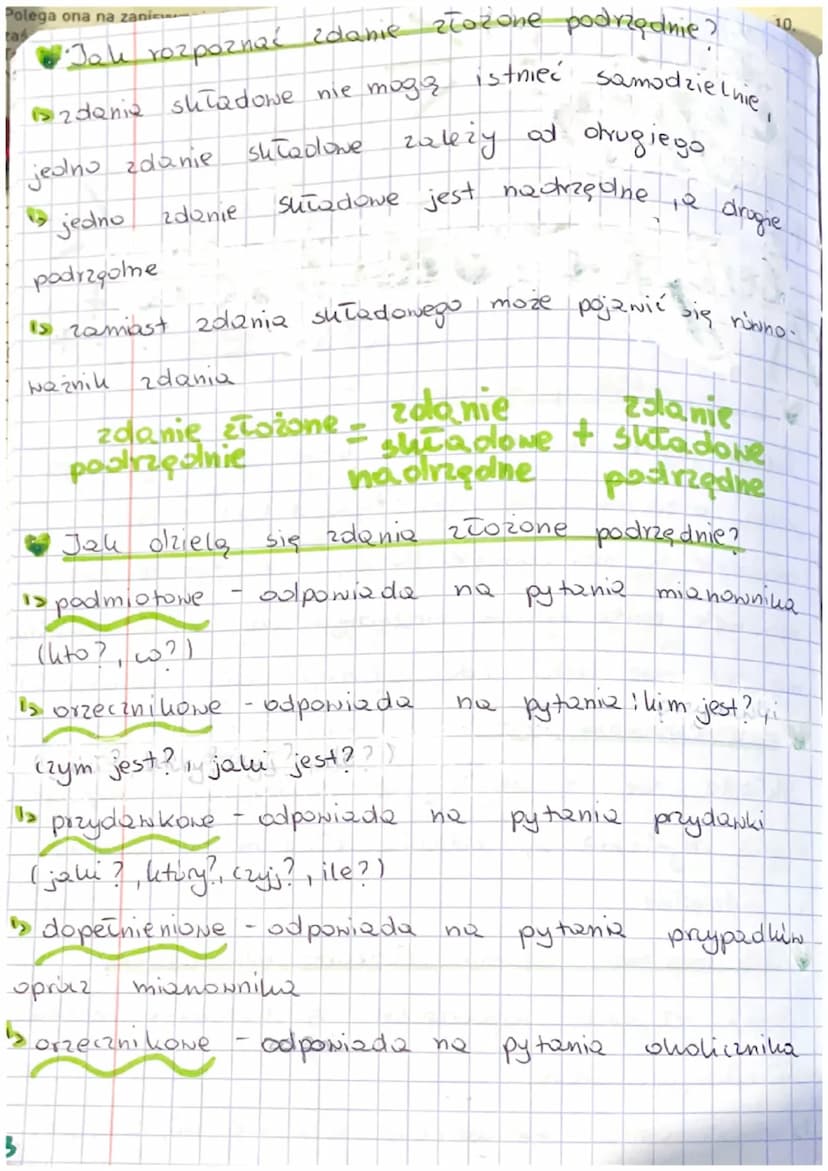 Polega ona na
10.
Jak rozpoznać zdanie złożone podrzędnie?
zdania składowe nie mogą istnieć samodzielnie,
jedno zdanie składowe zależy od drugiego
jedno zdanie składowe jest nadrzędne, a drugie
podrzędne
zamiast zdania składowego może pojawić się równo-
ważnik zdania
zdanie złożone podrzędnie = zdanie składowe nadrzędne + zdanie składowe podrzędne
Jak dzielą się zdania złożone podrzędnie?
podmiotowe - odpowiada na pytania mianownika
(kto?, co?)
orzecznikowe - odpowiada na pytania: kim jest?,
czym jest?, jaki jest?
przydawkowe - odpowiada na pytania przydawki
(jaki?, który?, czyj?, ile?)
dopełnieniowe - odpowiada na pytania przypadków
oprócz mianownika
orzecznikowe - odpowiada na pytania okolicznika